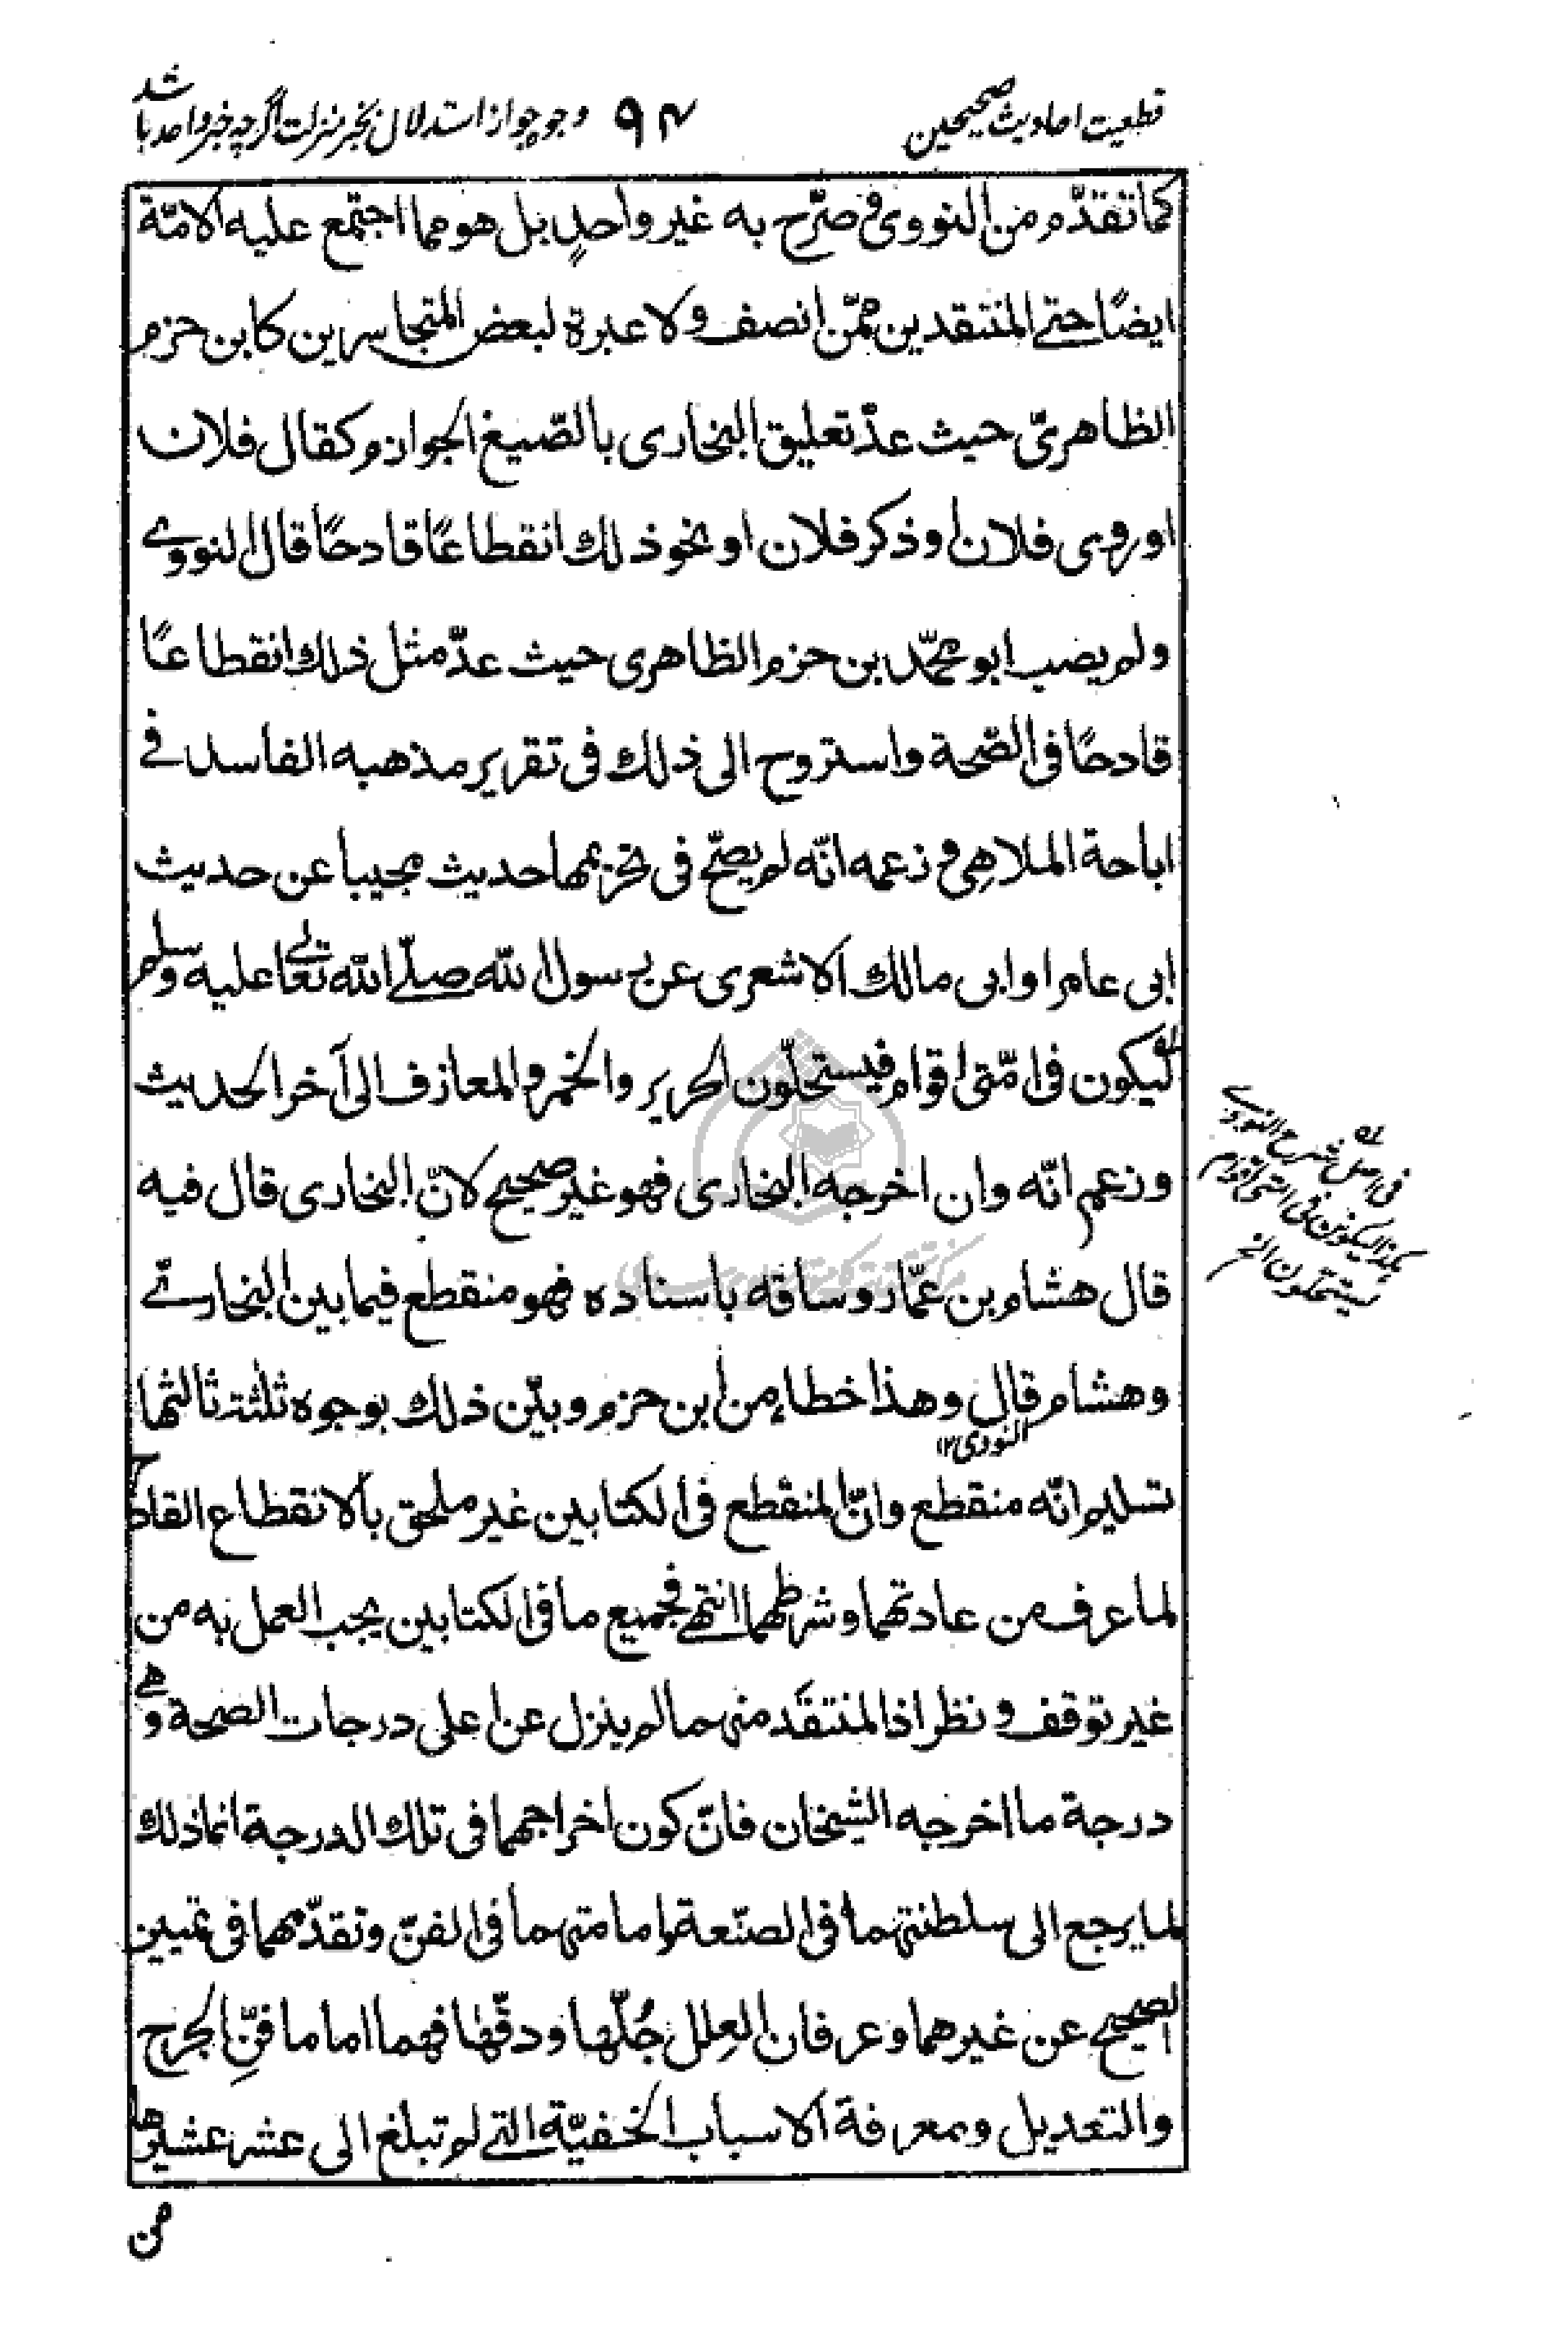 قطعیت احادیث صحیحین ٩٤ وجوه جواز استدلال بخبر منزلت اگرچه خبر واحد باشد
كما تقدّم من النووى و صرّح به غير واحدٍ بل هو مما اجتمع عليه الامّة
ايضًا حتى المنتقدين ممّن انصف و لا عبرة لبعض المتجاسرين كابن حزم
الظاهرىّ حيث عدّ تعليق البخارى بالصّيغ الجوازم كقال فلان
او روى فلان او ذكر فلان او نحو ذلك انقطاعًا قادحًا قال النووى
ولم يصب ابو محمّد بن حزم الظاهرى حيث عدّ مثل ذلك انقطاعًا
قادحًا فى الصّحة واستروح الى ذلك فى تقرير مذهبه الفاسد فى
اباحة الملاهى و زعمه انّه لم يصحّ فى تحريمها حديث مجيبا عن حديث
ابى عامر او ابى مالك الاشعرى عن رسول الله صلّى الله تعالى عليه وسلم
ليكون فى امّتى اقوام فيستحلّون الحرير والخمر والمعازف الى آخر الحديث
وزعم انّه وان اخرجه البخارى فهو غير صحيح لانّ البخارى قال فيه
قال هشام بن عمّار وساقه باسناده فهو منقطع فيما بين البخارى
وهشام قال وهذا خطاء من ابن حزم وبيّن ذلك بوجوه ثلثة ثالثها
النووى ١٢
تسليم انّه منقطع وانّ المنقطع فى الكتابين غير ملحق بالانقطاع القادح
لما عرف من عادتهما وشرطهما انتهى فجميع ما فى الكتابين يجب العمل به من
غير توقف و نظر اذا المنتقَد منهما لم ينزل عن اعلى درجات الصحة وهى
درجة ما اخرجه الشيخان فانّ كون اخراجهما فى تلك الدرجة انما ذلك
لما يرجع الى سلطنتهما فى الصنّعة وامامتهما فى الفنّ وتقدّمهما فى تميين
الصحيح عن غيرهما و عرفان العِلل جُلّها ودقّها فهما اماما فنّ الجرح
والتعديل ومعرفة الاسباب الخفيّة التى لم تبلغ الى عشر عشيرها
من
له
فى اصل شرح النووى
هكذا ليكونن فى امتى اقوام
يستحلون الخ